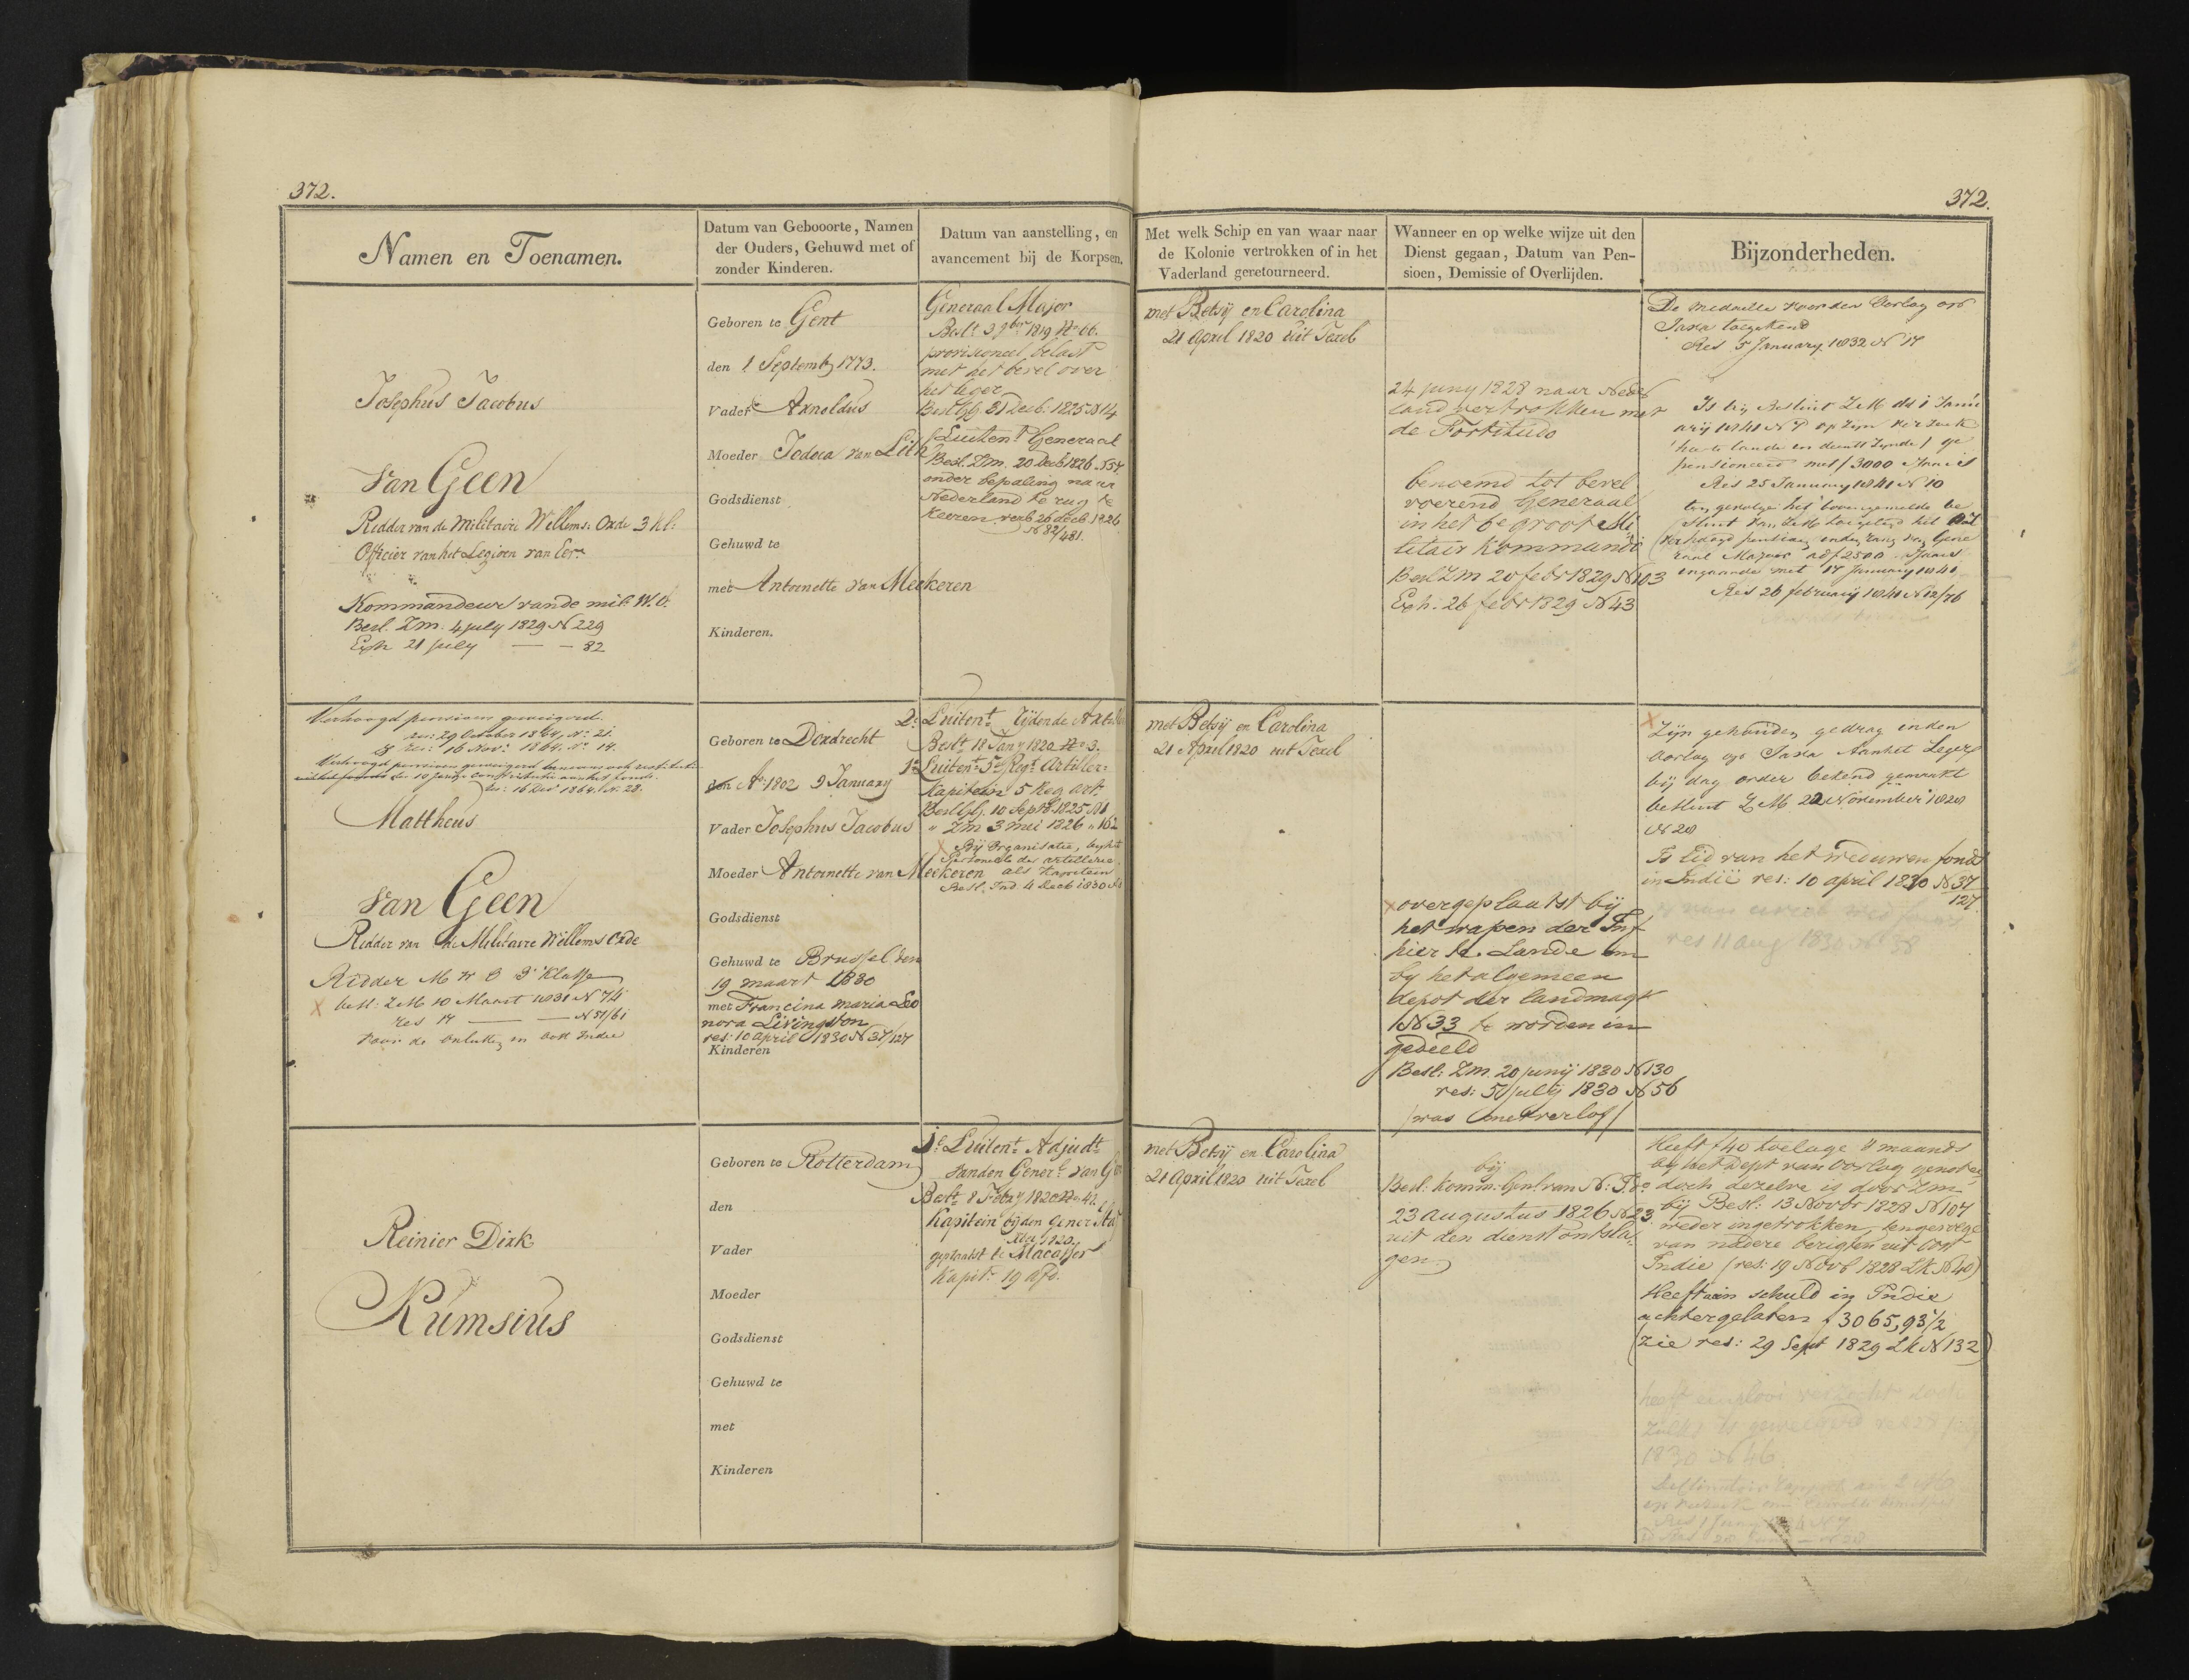 372.
372.
Namen en Toenamen.
Datum van Gebooorte, Namen
der Ouders, Gehuwd met of
zonder Kinderen.
Datum van aanstelling, en
avancement bij de Korpsen.
Met welk Schip en van waar naar
de Kolonie vertrokken of in het
Vaderland geretourneerd.
Wanneer en op welke wijze uit den
Dienst gegaan, Datum van Pen-
sioen, Demissie of Overlijden.
Bijzonderheden.
Josephus Jacobus
Van Geen
Ridder van de Militaire Willems: Orde 3 Kl:
Officier van het Legioen van Eer
Kommandeur van de mil: W. O.
Besl. Zm: 4 july 1829 N 229
Exh 21 july — — 82
Geboren te Gent
den 1 Septemb 1773.
Vader Arnoldus
Moeder Jodoca van Lith
Godsdienst
Gehuwd te
met Antoinette van Meekeren
Kinderen.
Generaal Major
Beslt 3 9ber 1819 No 66.
provisioneel belast
met het bevel over
het leger
Besl GG 31 Decb: 1825 N 14
Luitent Generaal
Besl. Zm. 20 Decb 1826 N 54
onder bepaling naar
Nederland terug te
keeren verb 26 decb 1826
N 82/481.
met Betsij en Carolina
21 April 1820 uit Texel
24 juny 1828 naar Neder
land vertrokken met
de Fortitudo
benoemd tot bevel
voerend Generaal
in het 6e groot Mi
litair Kommando
Besl Zm 20 febr 1829 N 103
Exh: 26 febr 1829 N 43
De medaille voor den Oorlog op
Java toegekend
Res 5 January 1832 N 17
Is bij Besluit Z M dd 1 Janu
arij 1841 N 7 op zijn verzoek
hier te lande in dienst zijnde / ge
pensioneerd met f 3000 Sjaars
Res 25 January 1841 N 10
ten gevolge het bovengemelde be
sluit van Z M toegelegd het
verhoogd pensioen onder rang van Gene
raal Majoor ad f 2500 Sjaars
ingaande met 17 January 1841
Res 26 february 1841 N 12/76
Verhoogd pensioen geweigerd.
res: 29 October 1864, No. 21.
res: 16 Nov: 1864. No 14.
Verhoogd pensioen geweigerd
der 10 jarige Contributie aan het fonds.
res: 16 Dec 1864. N. 28.
Mattheus
Van Geen
Ridder van de Militaire Willems Orde
Ridder M W O 3e Klasse
besl: Z M 10 Maart 1831 N 74
res 17 — — N 51/61
voor de in Oost Indie
Geboren te Dordrecht
den Ao 1802 9 January
Vader Josephus Jacobus
Moeder Antoinette van Meekeren
Godsdienst
Gehuwd te Brussel den
19 maart 1830
met Francina Maria Leo
nora Livingston
res: 10 april 1830 N 37/127
Kinderen
2e Luitent Rijdende Artillie
Beslt 18 Jany 1820 No 3.
1e Luitent 5e Regt Artiller:
Kapitein 5 Reg art.
Besl GG. 10 Septb 1825 N 1
" Zm 3 mei 1826 " 162
Bij Organisatie, by het
Personeele der artillerie
als Kapitein
Besl. Ind 4 Decb 1830 N
met Betsij en Carolina
21 April 1820 uit Texel
overgeplaatst bij
het wapen der Inf
hier te Lande om
bij het algemeen
depot der landmagt
N 33 te worden in
gedeeld
Besl: Zm. 20 junij 1830 N 130
res: 5 julij 1830 N 56
/was met verlof/
Zijn gehouden gedrag in den
oorlog op Java Aan het Leger
bij dag order bekend gemaakt
besluit Z M 22 November 1828
N 28
Is lid van het weduwen fonds
in Indië res: 10 april 1830 N 37
127.
res 11 aug 1830 N 38
Reinier Dirk
Rumsius
Geboren te Rotterdam
den
Vader
Moeder
Godsdienst
Gehuwd te
met
Kinderen
1e Luitent Adjudt
van den Generl van Geen
Beslt 8 Feby 1820 No. 42.
Kapitein bij den Gener Staf
1820
geplaatst te Macasser
Kapit: 19 afd.
met Betsij en Carolina
21 April 1820 uit Texel
bij
Besl: Komm: Genl van N: I. do
23 augustus 1826 N 23
uit den dienst ontsla
gen
Heeft f 40 toelage 'smaands
by het Dept van Oorlog genoten
doch dezelve is door Zm
bij Besl: 13 Novbr 1828 N 107
weder ingetrokken, tengevolge
van nadere berigten uit Oost
Indie (res: 19 Novb 1828 LK N 40)
Heeft aan schuld in Indie
achtergelaten f 3065,93 1/2
(zie res: 29 Sept 1829 LK N 132)
heeft verzocht doch
zulks is geweigerd
1830 N 46.